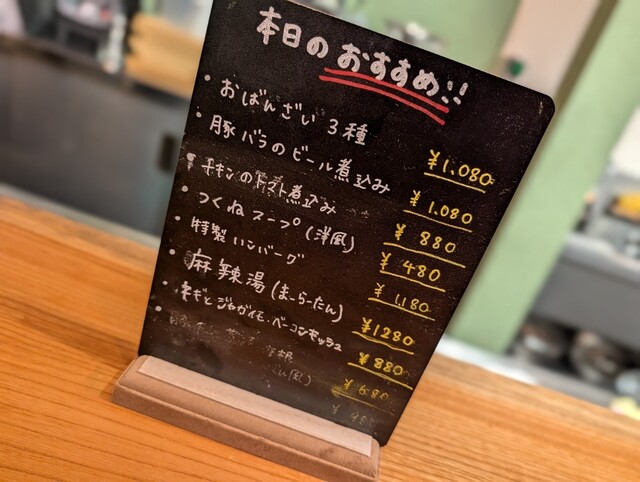 本日のおすすめ!!
・おばんざい3種 ¥1.080
・豚バラのビール煮込み ¥1.080
・チキンのトマト煮込み ¥880
・つくねスープ(洋風) ¥480
・特製ハンバーグ ¥1,180
・麻辣湯(まーらーたん) ¥1280
・ネギとジャガイモ・ベーコンキッシュ ¥880
¥680
風)